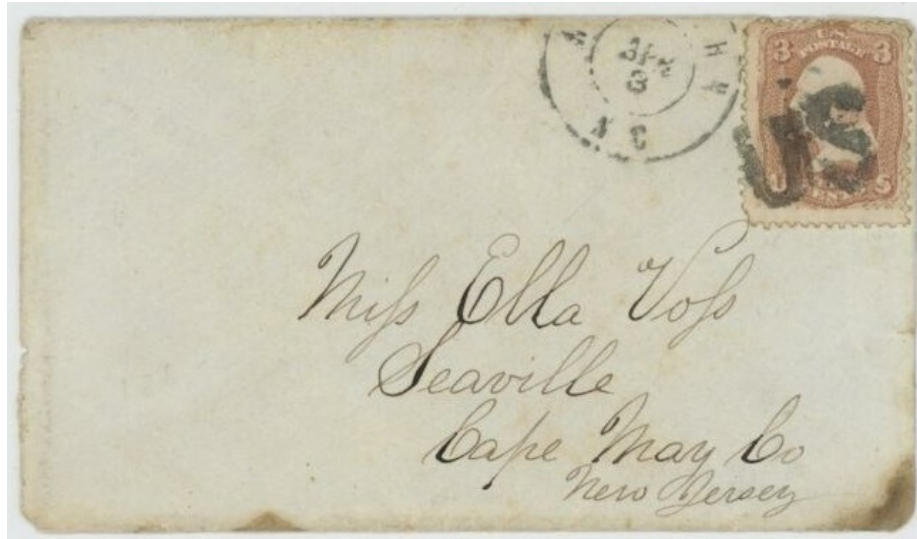 APR
3
N C
U.S.
POSTAGE
3 3
Miss Ella Voss
Seaville
Cape May Co
New Jersey